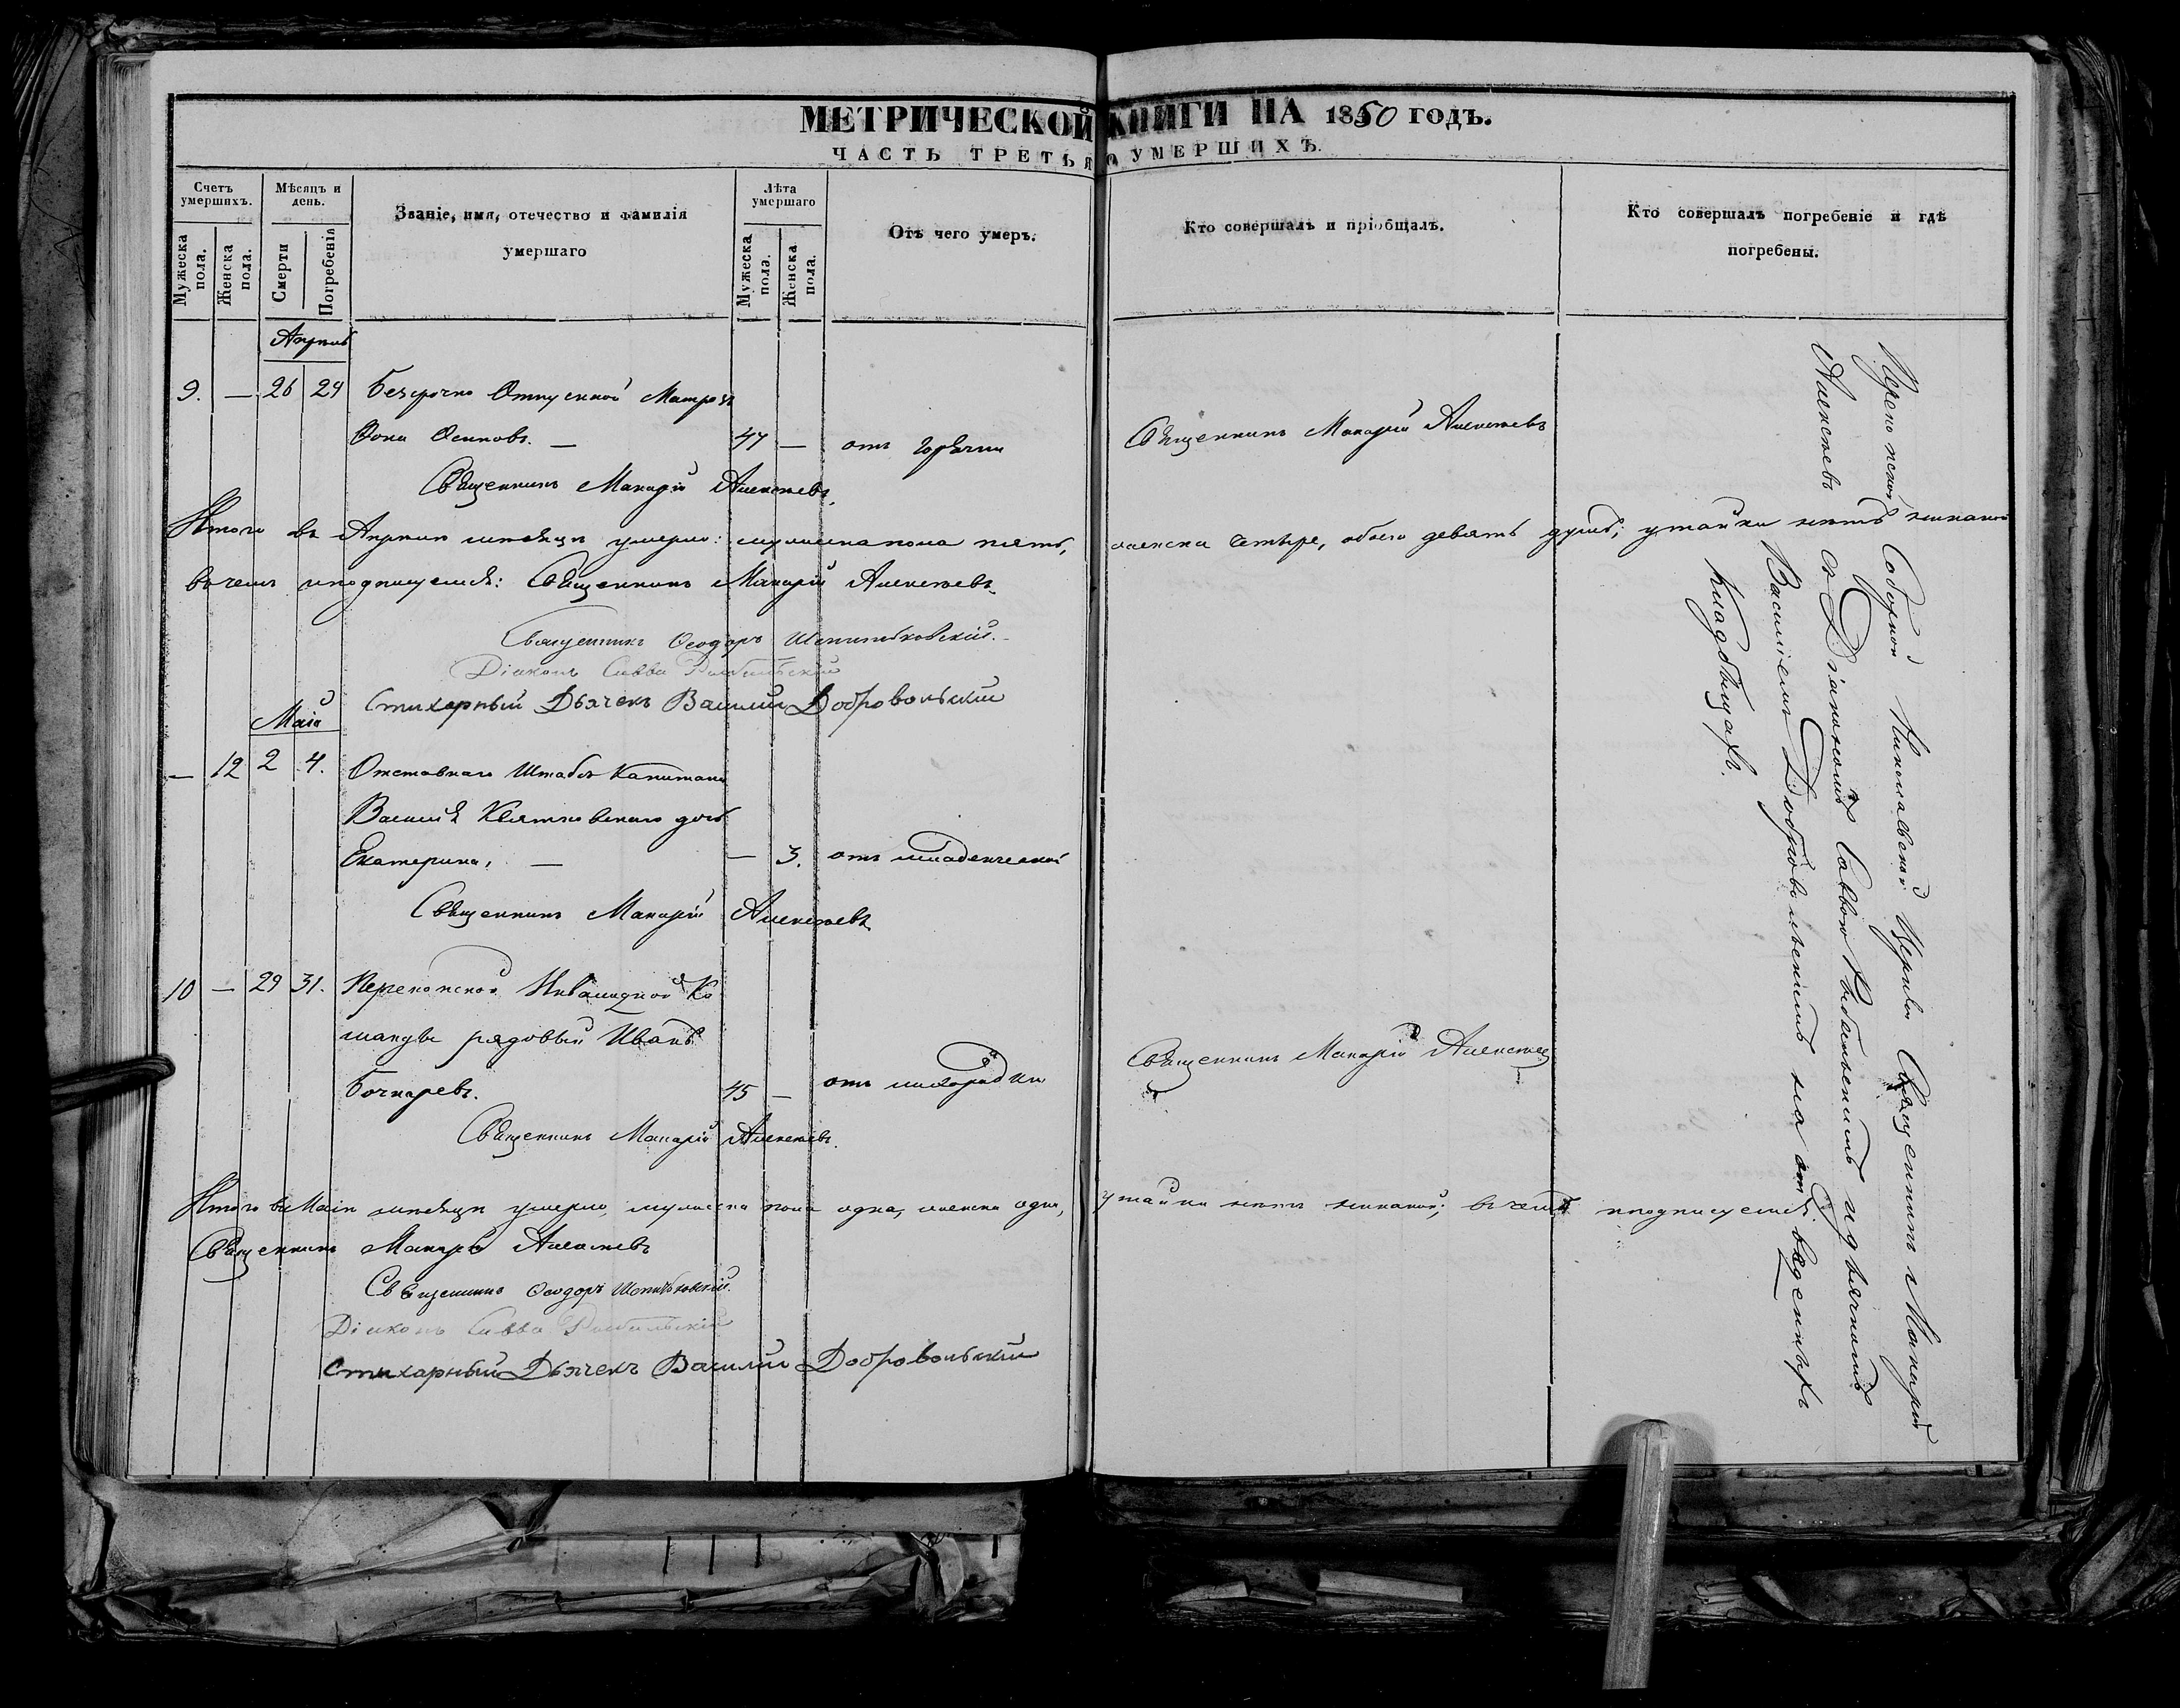 МЕТРИЧЕСКОЙ КНИГИ НА 1850 ГОДЪ.
ЧАСТЬ ТРЕТЬЯ О УМЕРШИХЪ.
Счетъ умершихъ.
Мужеска пола.
Женска пола.
Мѣсяцъ и день.
Смерти
Погребенія
Званіе, имя, отечество и фамилія умершаго
Лѣта умершаго
Мужеска пола.
Женска пола.
Отъ чего умеръ.
Кто совершалъ и пріобщалъ.
Кто совершалъ погребеніе и гдѣ погребены.
Апрѣль
9. — 26 29 Безсрочно Отпускной Матрозъ
Осиповъ. — 47 — отъ горячки Священникъ Макарій Алексѣевъ
Священникъ Макарій Алексѣевъ.
Итого въ Апрѣлѣ мѣсяцѣ умерло: мужеска пола пять, женска четыре, обоего девять душъ; утайки нѣтъ никакой
въ чемъ и подписуемся: Священникъ Макарій Алексѣевъ.
Священникъ Ѳеодоръ
Діаконъ Савва
Стихарный Дьячекъ Василий Добровольский
Маія
— 12 2 4. Отставнаго Штабсъ Капитана
Василія дочь
Екатерина, — — 3. отъ младенческой
Священникъ Макарій Алексѣевъ
10 — 29 31. Перекопской Инвалидной Ко
манды рядовый Иванъ
Бочкаревъ. 45 — отъ лихорадки Священникъ Макарій Алексѣевъ
Священникъ Макарій Алексѣевъ.
Итого въ Маіѣ мѣсяцѣ умерло, мужеска пола одна, женска одна, утайки нѣтъ никакой; въ чемъ и подписуемся.
Священникъ Макарій Алексѣевъ
Священникъ Ѳеодоръ
Діаконъ Савва
Стихарный Дьячекъ Василий Добровольский
Перекопской Соборной Николаевской Церкви Священникъ Макарій
Алексѣевъ съ Діакономъ Саввою и дьячкомъ
Василіемъ Добровольскимъ на отведенныхъ
Кладбищахъ.